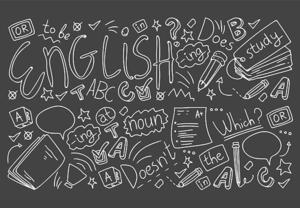 OR to be in ? Does B
ENGLISH ing study
T ABC
A at ing T noun A+ Which? OR
A A Doesn't in A the A